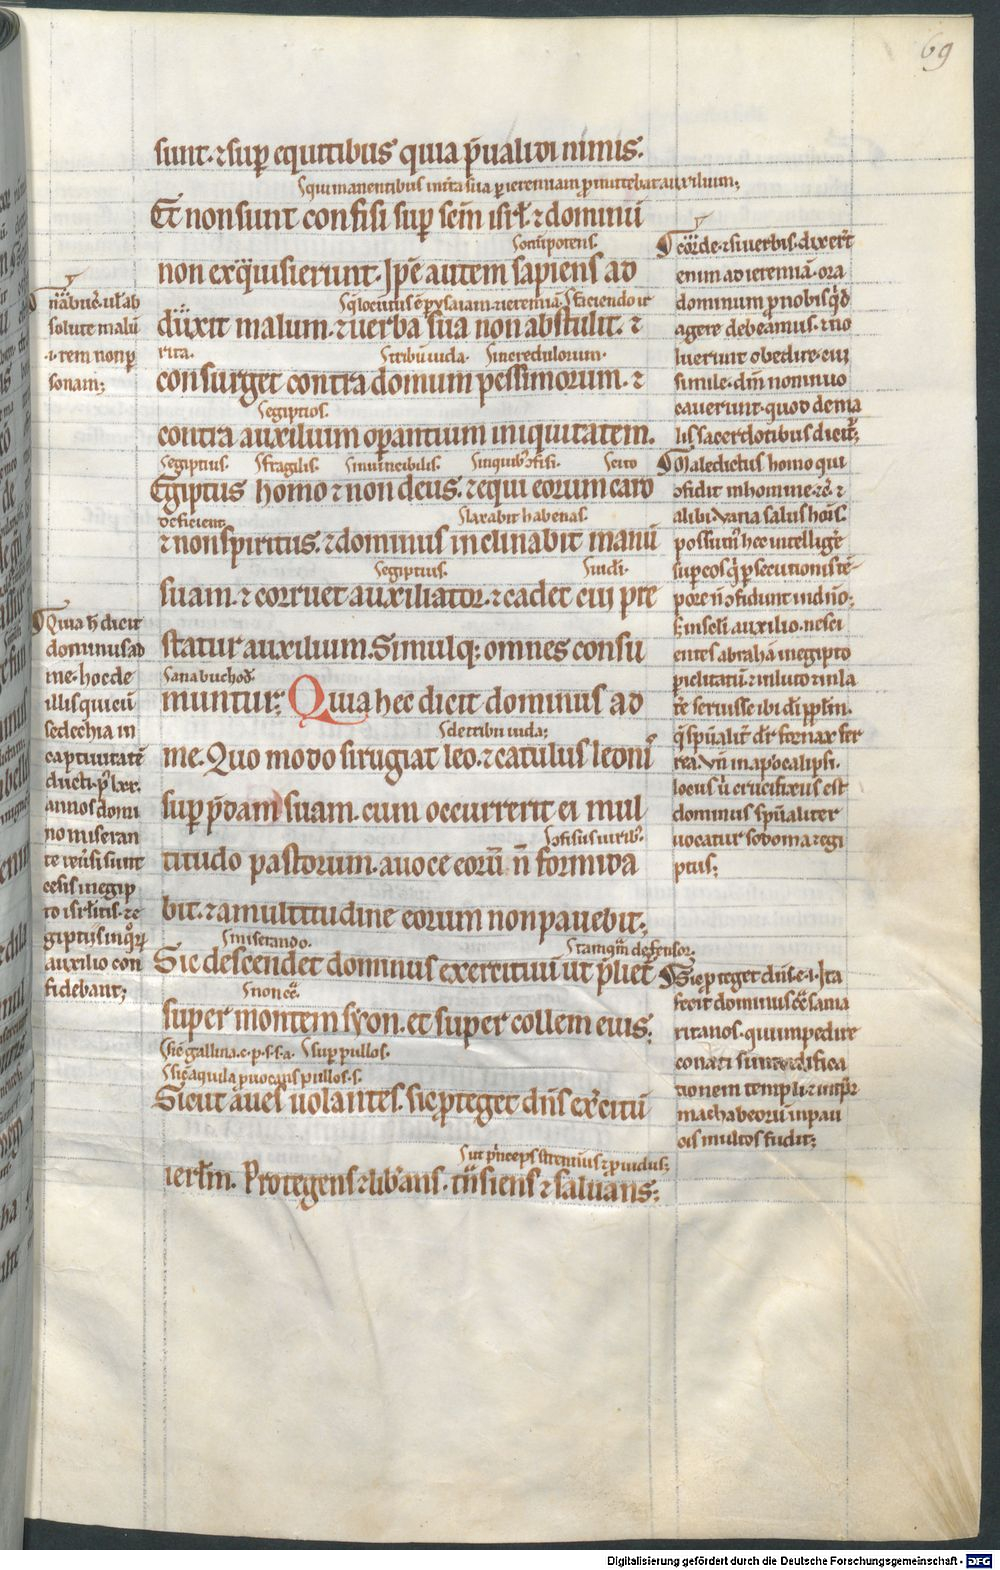 69
sunt. ⁊ sup equitibus quia p̄ualidi nimis.
S qui manentibus in t̄ra sua p ieremiam promittebat auxilium;
Et non sunt confisi sup sc̄m isrl̄. ⁊ dominū
S om̄ipotens.
non exq̈uisierunt. Ip̄e autem sapiens ad
S q locutus ē p ysaiam. ⁊ ieremiā. S faciendo ir
duxit malum. ⁊ uerba sua non abstulit. ⁊
rita. S tribū iuda. S incredulorum.
consurget contra domum pessimorum. ⁊
S egiptios.
contra auxilium operantium iniquitatem.
S egiptius. S fragilis. S inuincibilis. S in quib; ɔfisi. S cito
Egiptus homo ⁊ non deus. ⁊ equi eorum caro
deficient. S laxabit habenas.
⁊ non spiritus. ⁊ dominus inclinabit manū
S egiptius. S iudei.
suam. ⁊ corruet auxiliator. ⁊ cadet cui pre
statur auxilium. Simulq; omnes consu
S a nabuchod̄.
muntur; Quia hec dicit dominus ad
S de tribu iuda;
me. Quo modo si rugiat leo. ⁊ catulus leonis
sup p̄dam suam. cum occurrerit ei mul
S ɔfisus uirib;
titudo pastorum. a uoce eorū n̄ formida
bit. ⁊ a multitudine eorum non pauebit;
S miserando. S tamq̄m defensor.
Sic descendet dominus exercituū ut p̄liet̄
S non eē.
super montem syon. et super collem eius;
S sic gallina. c. p. s. s. a. S sup pullos.
S sic aquila puocans pullos. s.
Sicut aues uolantes. sic proteget dn̄s exercituū
S ut p̄nceps strenuus ⁊ p̄uidus;
ierlm̄. Protegens ⁊ lib̄ans. t̄nsiens ⁊ saluans;
solute malū
.i. rem non p
sonam;
Quia h̄ dicit
dominus ad
me. hoc de
illis qui cū
sedechia in
captiuitatē
ducti. p̄ lxx.
annos domi
no miseran
te reuersi sunt
cesis in egip
to isrl̄itis. ⁊ e
giptiis in quorum
auxilio con
fidebant;
Corde. ⁊ si uerbis. dixer̄t
enim ad ieremiā. ora
dominum p nobis q̄d
agere debeamus. ⁊ no
luerunt obedire. cui
simile. dm̄ non inuo
cauerunt. quod de ma
lis sacerdotibus dicit̄;
Maledictus homo qui
ɔfidit in homine. ⁊c̄. ⁊
alibi. Vana salus hoīs.
possum; hec intellig̃e
sup eos q̄ p̄secutionis tē
pore n̄ ɔfidunt in dn̄o;
S in seli auxilio. nesci
entes abrahā in egipto
periclitatū. ⁊ in luto ⁊ in la
t̄e seruisse ibi dī pplm̄.
q̄ sp̄ualit̄ dr̄ fornax fer
rea. Vn̄ in apocalipsi.
locus ū crucifixus est
dominus sp̄ualiter
uocatur sodoma ⁊ egi
ptus;
Sic p̄teget dn̄s. e. i. Ita
fecit dominus cōt̄ sama
ritanos. qui impedire
conati sunt edifica
tionem templi. ⁊ in tp̄r
machabeorū in pau
cis multos fudit;
Digitalisierung gefördert durch die Deutsche Forschungsgemeinschaft - DFG